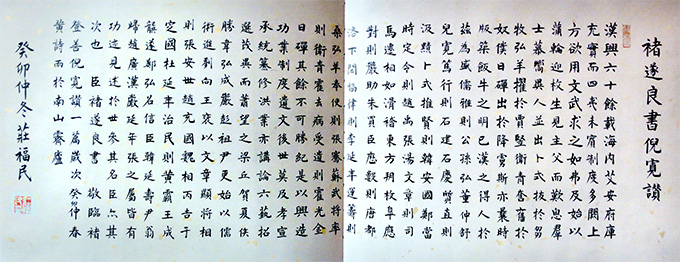 褚遂良書倪寬讚
漢興六十餘載海內艾安府庫
充實而四夷未賓制度多闕上
方欲用文武求之如弗及始以
蒲輪迎枚生見主父而歎息群
士慕嚮異人並出卜式拔於芻
牧弘羊擢於賈豎衛青奮於
奴僕日磾出於降虜斯亦曩時
版築飯牛之明已漢之得人於
茲為盛儒雅則公孫弘董仲舒
兒寬篤行則石建石慶質直則
汲黯卜式推賢則韓安國鄭當
時定令則趙禹張湯文章則司
馬遷相如滑稽東方朔枚皋應
對則嚴助朱買臣歷數則唐都
洛下閎協律則李延年運籌則
桑弘羊奉使則張騫蘇武將率
則衛青霍去病受遺則霍光金
日磾其餘不可勝紀是以興造
功業制度遺文後世莫及孝宣
承統纂修洪業亦講論六藝招
選茂異而蕭望之梁丘賀夏侯
勝韋玄成嚴彭祖尹更始以儒
術進劉向王褒以文章顯將相
則張安世趙充國魏相丙吉于
定國杜延年治民則黃霸王成
龔遂鄭弘召信臣韓延壽尹翁
歸趙廣漢嚴延年張之屬皆有
功迹見述於世參其名臣亦其
次也 臣褚遂良書 敬臨褚
登善倪寬讚一篇歲次癸卯仲春
黃詩雨於南山霽廬
癸卯仲冬莊福民